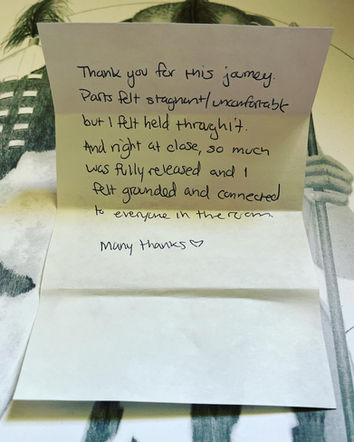 Thank you for this journey.
Parts felt stagnant/uncomfortable
but I felt held through it.
And right at close, so much
was fully released and I
felt grounded and connected
to everyone in the room.
Many thanks♡